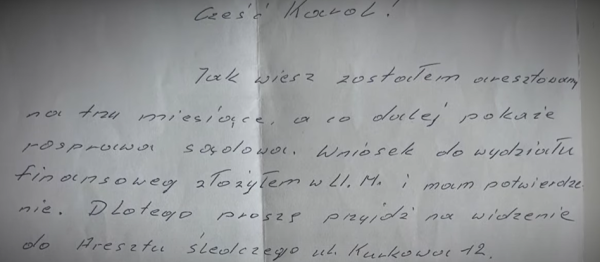 Cześć Karol!
Jak wiesz zostałem aresztowany
na trzy miesiące, a co dalej pokaże
rosprawa sądowa. Wniosek do wydziału
finansoweg złożyłem w U. M. i mam potwierdze
nie. Dlatego proszę przyjdź na widzenie
do Aresztu śledczego ul. Kurkowa 12.